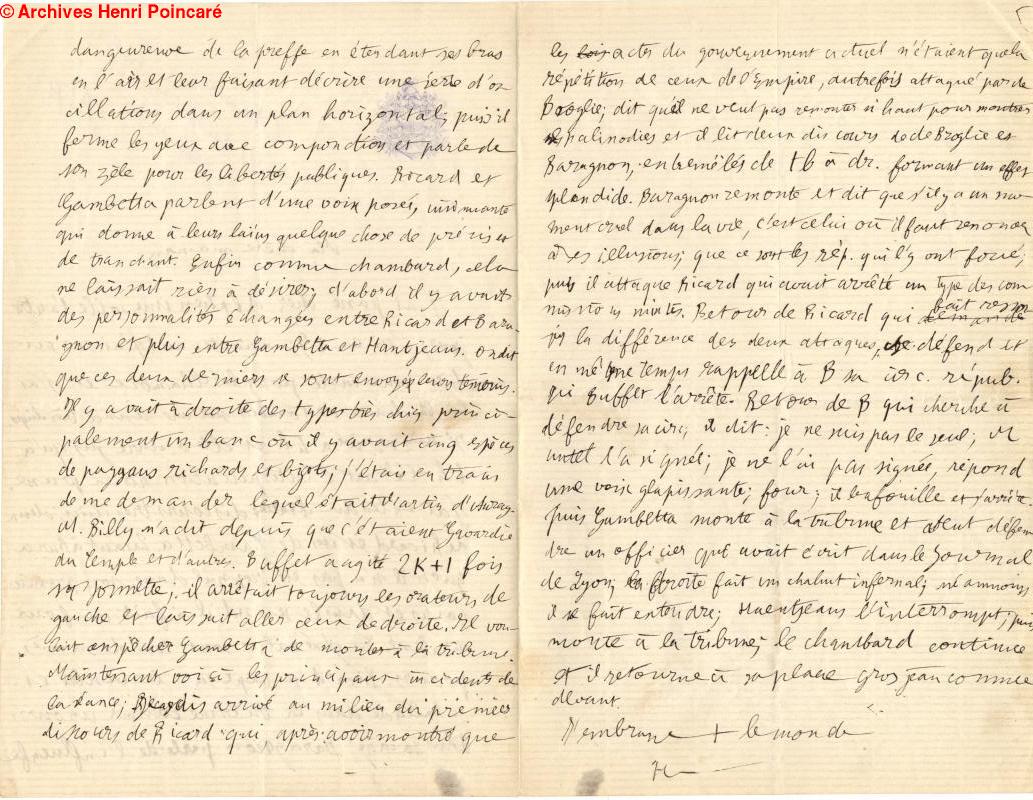 © Archives Henri Poincaré
dangereuse de la presse en étendant ses bras
en l'air et leur faisant décrire une série d'os
cillations dans un plan horizontal; puis il
ferme les yeux avec componction et parle de
son zèle pour les libertés publiques. Ricard et
Gambetta parlent d'une voix posée, insinuante
qui donne à leurs laïus quelque chose de précis et
de tranchant. Enfin comme chambard, cela
ne laissait rien à désirer; d'abord il y avait
des personnalités échangées entre Ricard et Bara-
gnon et puis entre Gambetta et Hantjeans. On dit
que ces deux derniers se sont envoyé leurs témoins.
Il y avait à droite des types très chiq princi-
palement un banc où il y avait cinq espèces
de paysans richards et bigots; j'étais en train
de me demander lequel était Martin d'Auray
M. Billy m'a dit depuis que c'étaient Gavardie
du Temple et d'autres. Buffet a agité 2K+1 fois
sa sonnette; il arrêtait toujours les orateurs de
gauche et laissait aller ceux de droite. Il vou-
lait empêcher Gambetta de monter à la tribune.
Maintenant voici les principaux incidents de
la séance; arrivé au milieu du premier
discours de Ricard qui après avoir montré que
les lois actes du gouvernement actuel n'étaient que la
répétition de ceux de l'Empire, autrefois attaqué par de
Broglie; dit qu'il ne veut pas remonter si haut pour montrer
les palinodies et il lit deux discours de de Broglie et
Baragnon, entremêlés de tb à dr. formant un effet
splendide. Baragnon remonte et dit que s'il y a un mo-
ment cruel dans la vie, c'est celui où il faut renoncer
à ses illusions; que ce sont les rép. qui l'y ont forcé;
puis il attaque Ricard qui avait arrêté un type des com
missions mixtes. Retour de Ricard qui demande
fait ressor
tir la différence des deux attaques, se défend et
en même temps rappelle à B sa circ. répub.
qui Buffet l'arrête. Retour de B qui cherche à
défendre sa circ, il dit: je ne suis pas le seul; M
untel l'a signée; je ne l'ai pas signée, répond
une voix glapissante; four; il bafouille et s'arrête
puis Gambetta monte à la tribune et veut défen
dre un officier qui avait écrit dans le Journal
de Lyon; la droite fait un chahut infernal; néanmoins
il se fait entendre; Haentjeans l'interrompt; puis
monte à la tribune; le chambard continue
et il retourne à sa place gros jean comme
devant.
J'embrasse + le monde
H